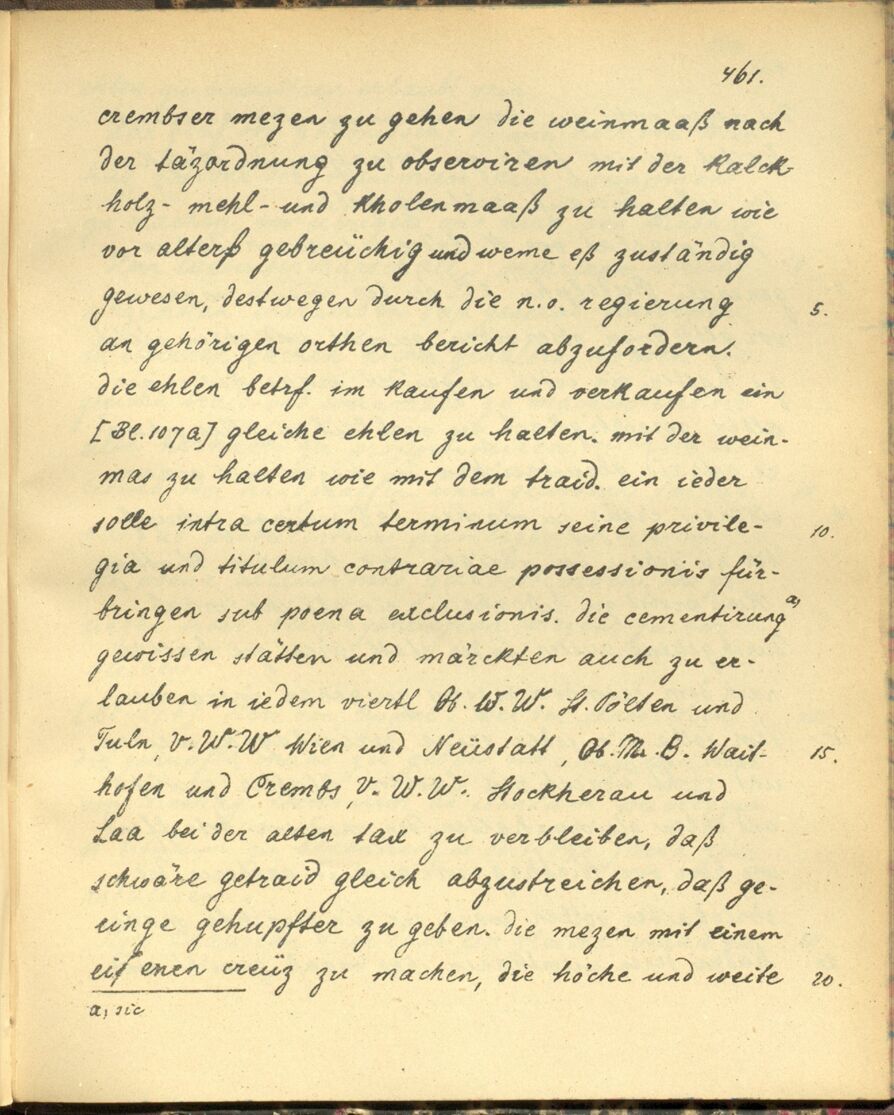 461.
crembser mezen zu gehen die weinmaaß nach
der täzordnung zu observiren mit der Kalck-
holz- mehl- und Kholenmaaß zu halten wie
vor alterß gebreüchig und weme eß zuständig
gewesen, destwegen durch die n.o. regierung 5.
an gehörigen orthen bericht abzufordern.
die ehlen betrf. im Kaufen und verKaufen ein
[Bl.107a] gleiche ehlen zu halten. mit der wein-
mas zu halten wie mit dem traid. ein ieder
solle intra certum terminum seine privile- 10.
gia und titulum contrariae possessionis für-
bringen sub poena exclusionis. die cementirung a)
gewissen stätten und märckten auch zu er-
lauben in iedem viertl Ob. W. W. St. Pölten und
Tuln, V. W. W Wien und Neüstatt, Ob. M. B. Wait- 15.
hofen und Crembs, V. W. W. Stockherau und
Laa bei der alten tax zu verbleiben, daß
schwäre getraid gleich abzustreichen, daß ge-
ringe gehupfter zu geben. die mezen mit einem
eisenen creüz zu machen, die höche und weite 20.
a) sic